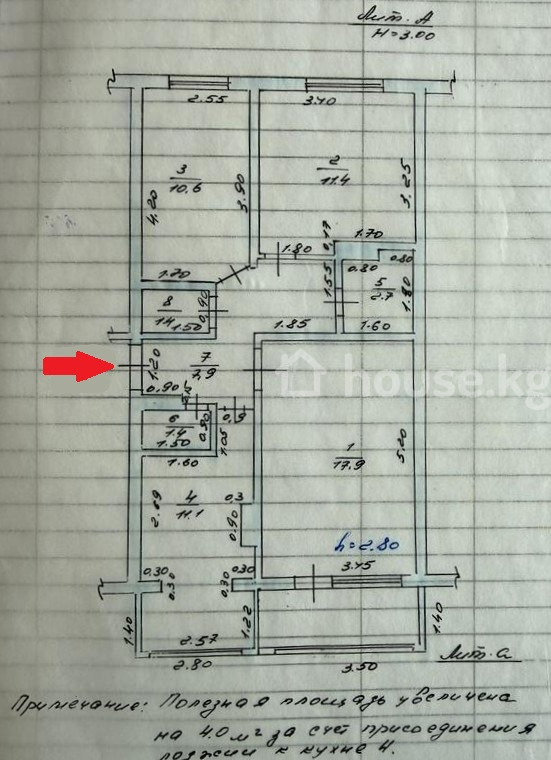 Лит. А
H=3.00
2.55
3.40
3
10,6
2
11.4
4.20
3.90
3.25
1.70
0,17
1.80
1.70
0.80
0.80
1.55
5
2.7
1.80
8
1.4
0,90
1.50
1.85
1.60
1.20
7
7,9
0.90
6
1.4
0,90
0,9
1.50
1.05
1.60
house.kg
1
17.9
5.20
2.69
4
11.1
0,3
0.90
h=2.80
3.45
0.30
0.30
0,30
0,30
1.40
1.22
1.40
2.57
2.80
3.50
Лит. а
Примечание: Полезная площадь увеличена
на 4.0 м² за счёт присоединения
лоджии к кухне 4.